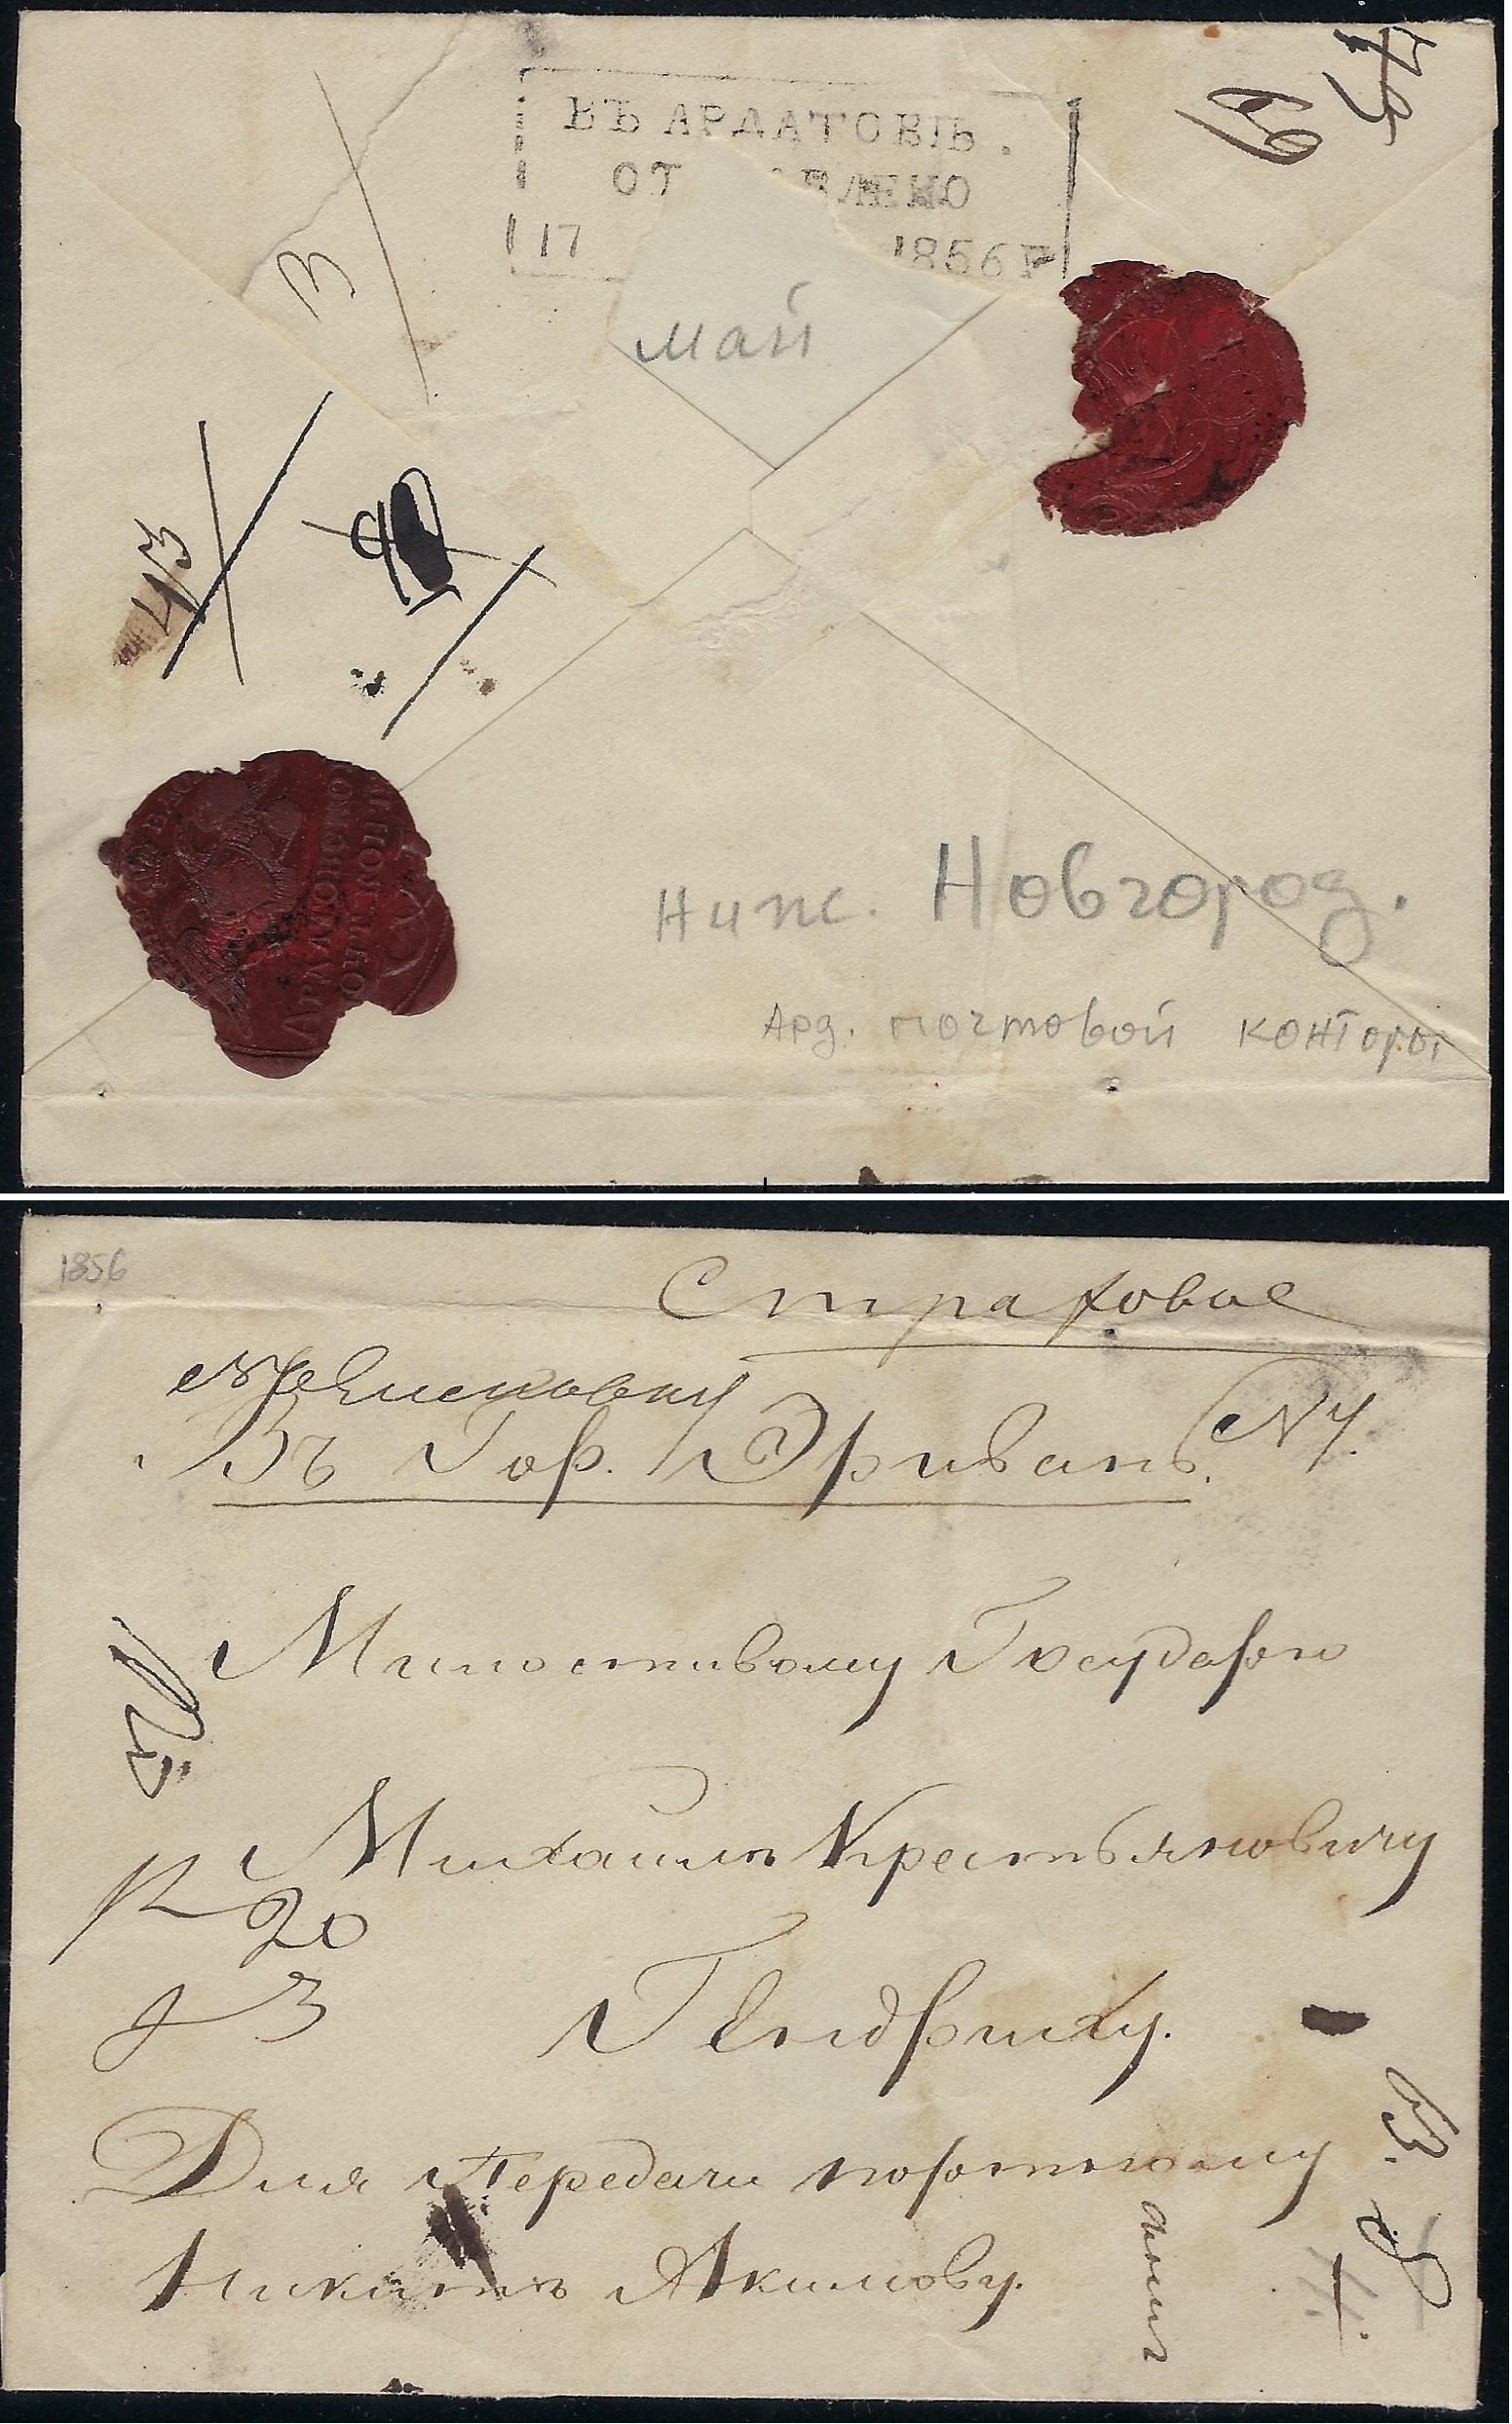 43
19
ВЪ АРДАТОВѢ.
ОТ ВЛЕНО
17 1856 Г
3
май
43
Ниж. Новгород.
Ард. почтовой конторы
1856
Страховое
Въ Гор. Эривань. N 4.
Милостивому Государю
Михаилѣ Крестьяновичу
20
3
Гендриху.
Для Передачи портному
Никитѣ Акимову.